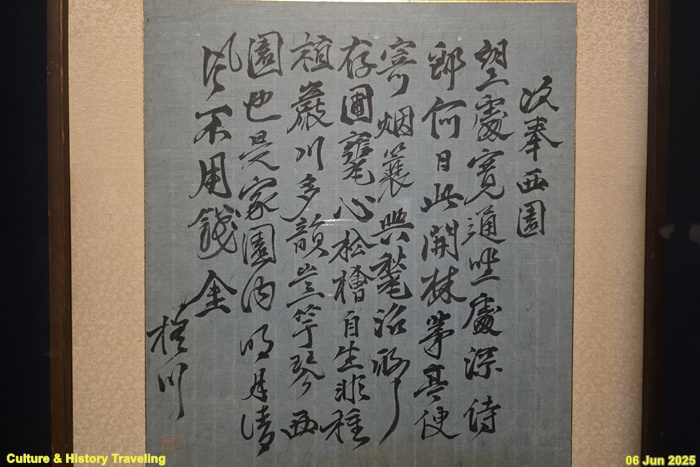 次奉西園
望處寬通坐處深侍
郎何日此開林茅亭便
寄烟蓑興鑿沼
存圃甕心松檜自生非種
植巖川多韻豈竽琴西
園也是家園內明月清
風不用錢金
川
Culture & History Traveling
06 Jun 2025